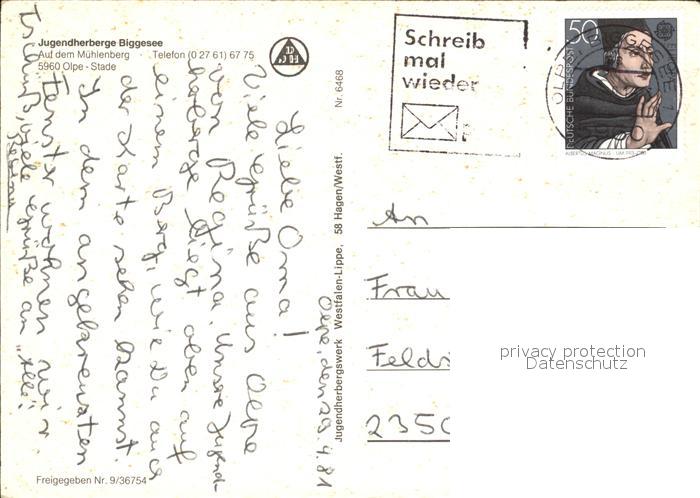 Jugendherberge Biggesee
Auf dem Mühlenberg Telefon (0 27 61) 67 75
5960 Olpe - Stade
Schreib
mal
wieder
50
DEUTSCHE BUNDESPOST
ALBERTUS MAGNUS
Nr. 6468
Jugendherbergswerk Westfalen-Lippe, 58 Hagen/Westf.
Olpe, den 29.4.81
Liebe Oma!
Viele Grüße aus Olpe
von Regina. Unsere Jugend-
herberge liegt oben auf
einem Berg, wie Du auch
der Karte sehen kannst.
In dem angekreuzten
Fenster wohnen wir.
Tschüß, viele Grüße an "Alle"!
An
Frau
2350
privacy protection
Datenschutz
Freigegeben Nr. 9/36754